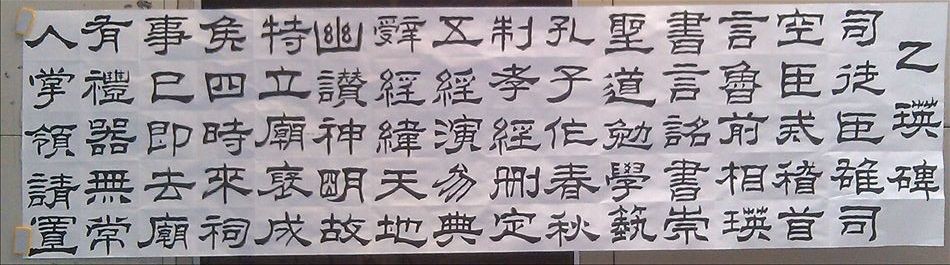 乙瑛碑
司徒臣雄司
空臣戒稽首
言魯前相瑛
書言詔書崇
聖道勉學藝
孔子作春秋
制孝經刪定
五經演易典
辤經緯天地
幽讚神明故
特立廟褒成
侯四時來祠
事已即去廟
有禮器無常
人掌領請置